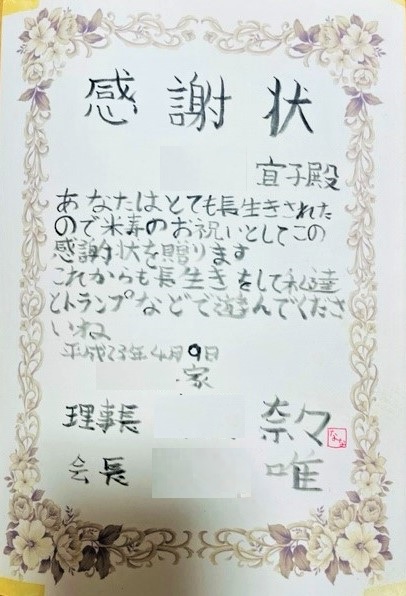 感謝状
宜子殿
あなたはとても長生きされた
ので米寿のお祝いとしてこの
感謝状を贈ります
これからも長生きをして私達
とトランプなどで遊んでくださ
いね
平成23年4月9日
家
理事長 奈々 なな
会長 唯